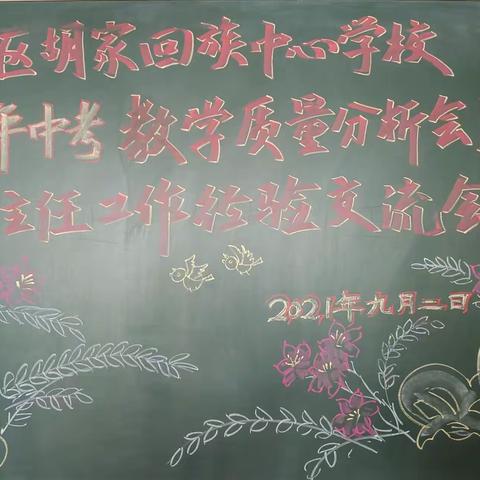 区胡家回族中心学校
年中考教学质量分析会
主任工作经验交流会
2021年九月二日